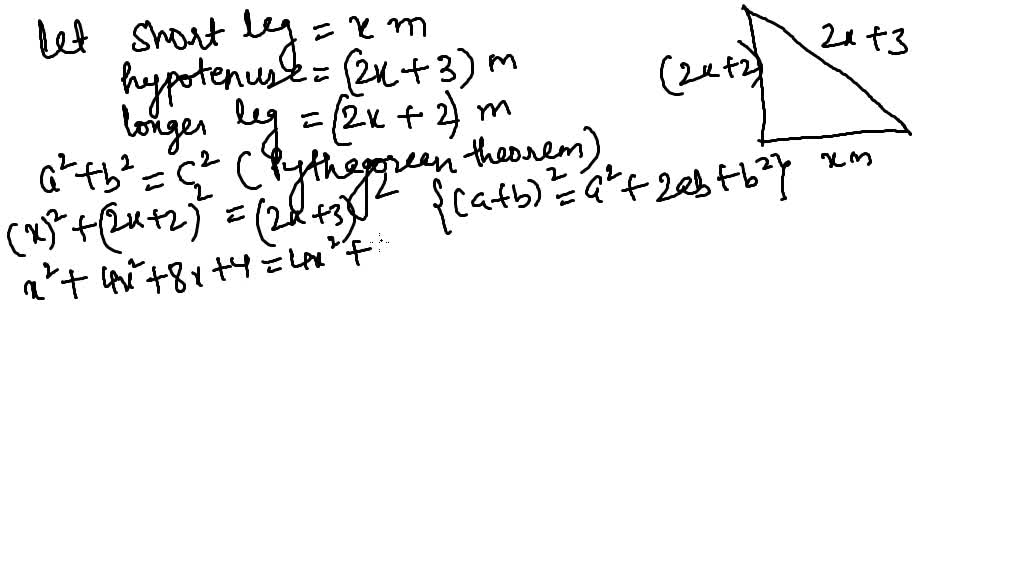 let short leg = x m
hypotenuse = (2x + 3) m
longer leg = (2x + 2) m
a² + b² = c² (Pythagoreen theorem)
(x)² + (2x+2)² = (2x+3)² {(a+b)² = a² + 2ab + b²}
x² + 4x² + 8x + 4 = 4x² +
2x + 3
(2x+2)
x m